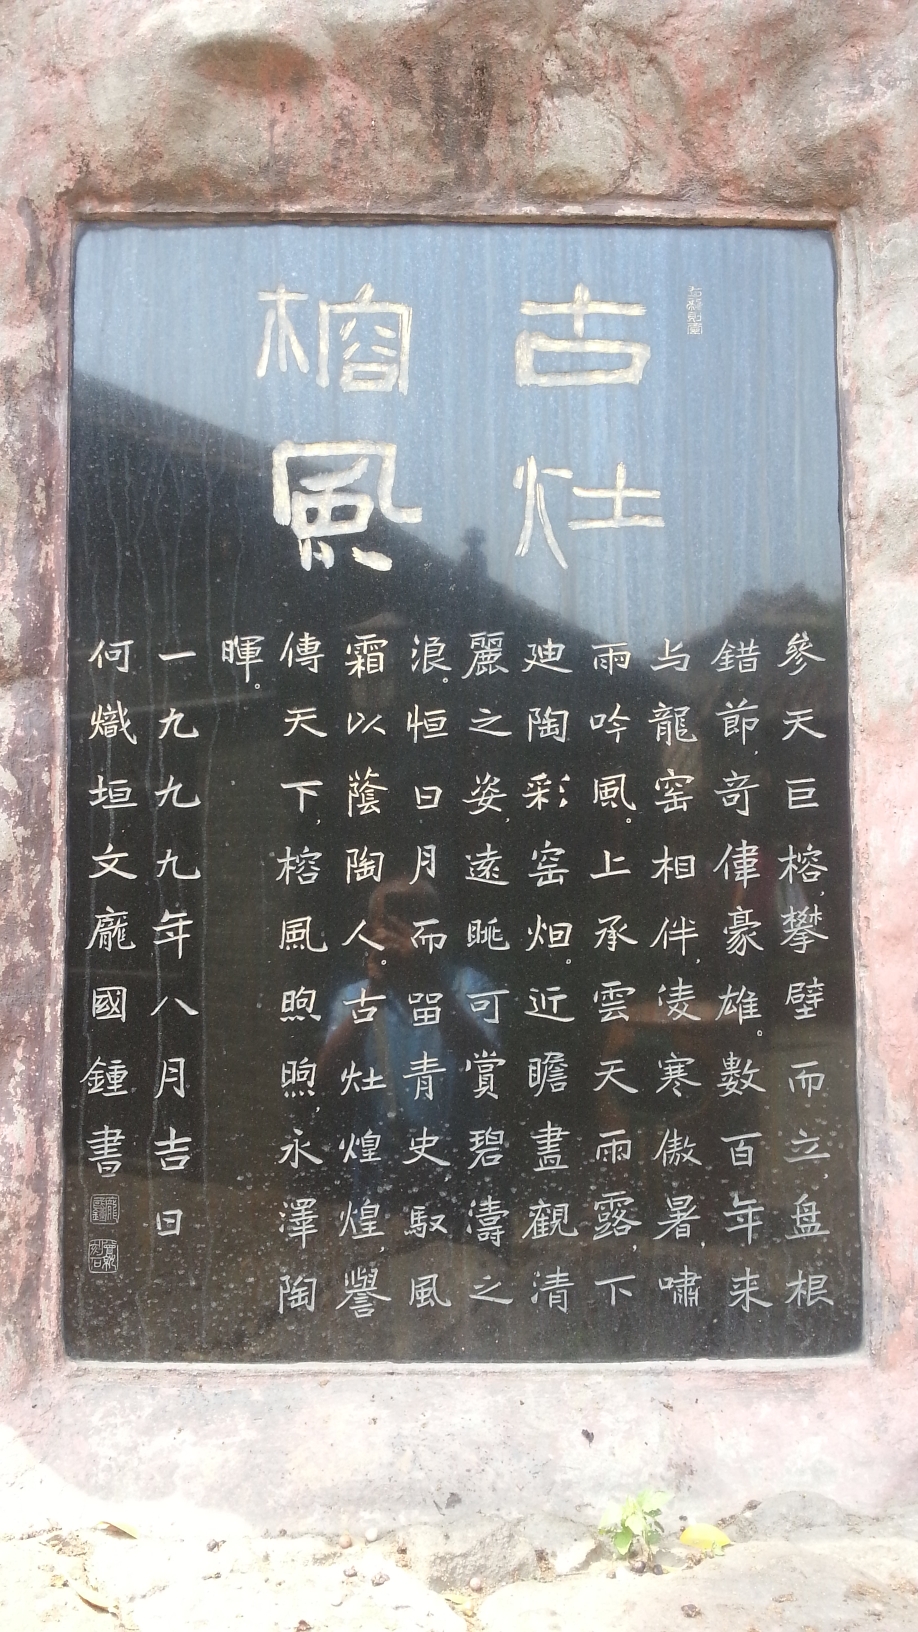 古灶
榕風
參天巨榕,攀壁而立,盘根
錯節,奇偉豪雄。數百年来
与龍窑相伴,凌寒傲暑,嘯
雨吟風。上承雲天雨露,下
廸陶彩窑烟。近瞻盡觀清
麗之姿,遠眺可賞碧濤之
浪。恒日月而留青史,馭風
霜以蔭陶人。古灶煌煌,譽
傳天下,榕風煦煦,永澤陶
暉。
一九九九年八月吉日
何熾垣文龐國鍾書